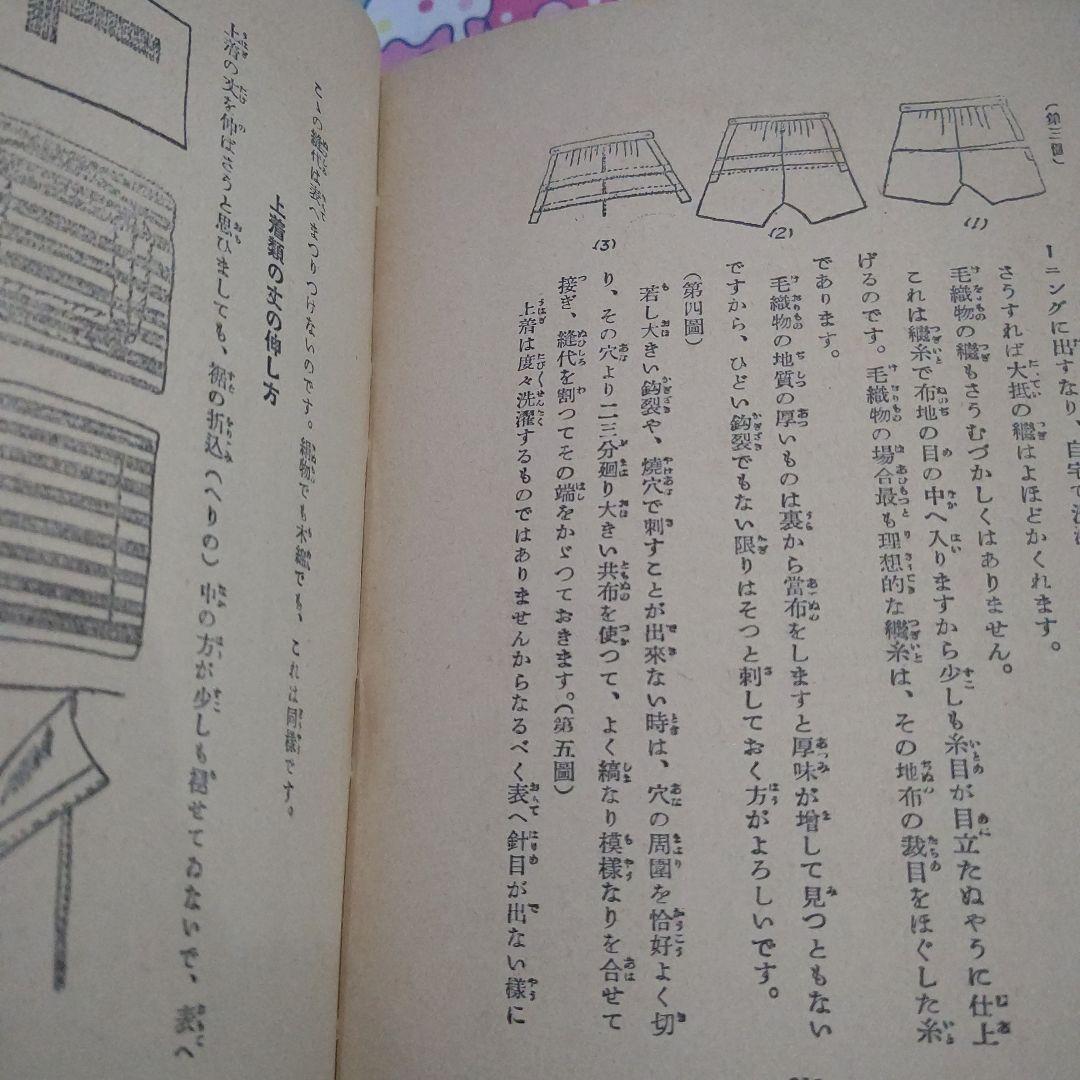 (第三圖)
(1)
(2)
(3)
ーニングに出すなり、自宅で
さうすれば大抵の繼はよほどかくれます。
毛織物の繼もさうむづかしくはありません。
これは繼糸で布地の目の中へ入りますから少しも糸目が目立たぬやうに仕上
げるのです。毛織物の場合最も理想的な繼糸は、その地布の裁目をほぐした糸
であります。
毛織物の地質の厚いものは裏から當布をしますと厚味が增して見つともない
ですから、ひどい鈎裂でもない限りはそつと刺しておく方がよろしいです。
(第四圖)
若し大きい鈎裂や、燒穴で刺すことが出來ない時は、穴の周圍を恰好よく切
り、その穴より二三分廻り大きい共布を使つて、よく縞なり模樣なりを合せて
接ぎ、縫代を割つてその端をかゞつておきます。(第五圖)
上着は度々洗濯するものではありませんからなるべく表へ針目が出ない樣に
の縫代は表へまつりつけないのです。絹物でも木綿でも、これは同樣です。
上着類の丈の伸し方
上着の丈を伸ばさうと思ひましても、裾の折込(へりの)中の方が少しも褪せてゐないで、表へ